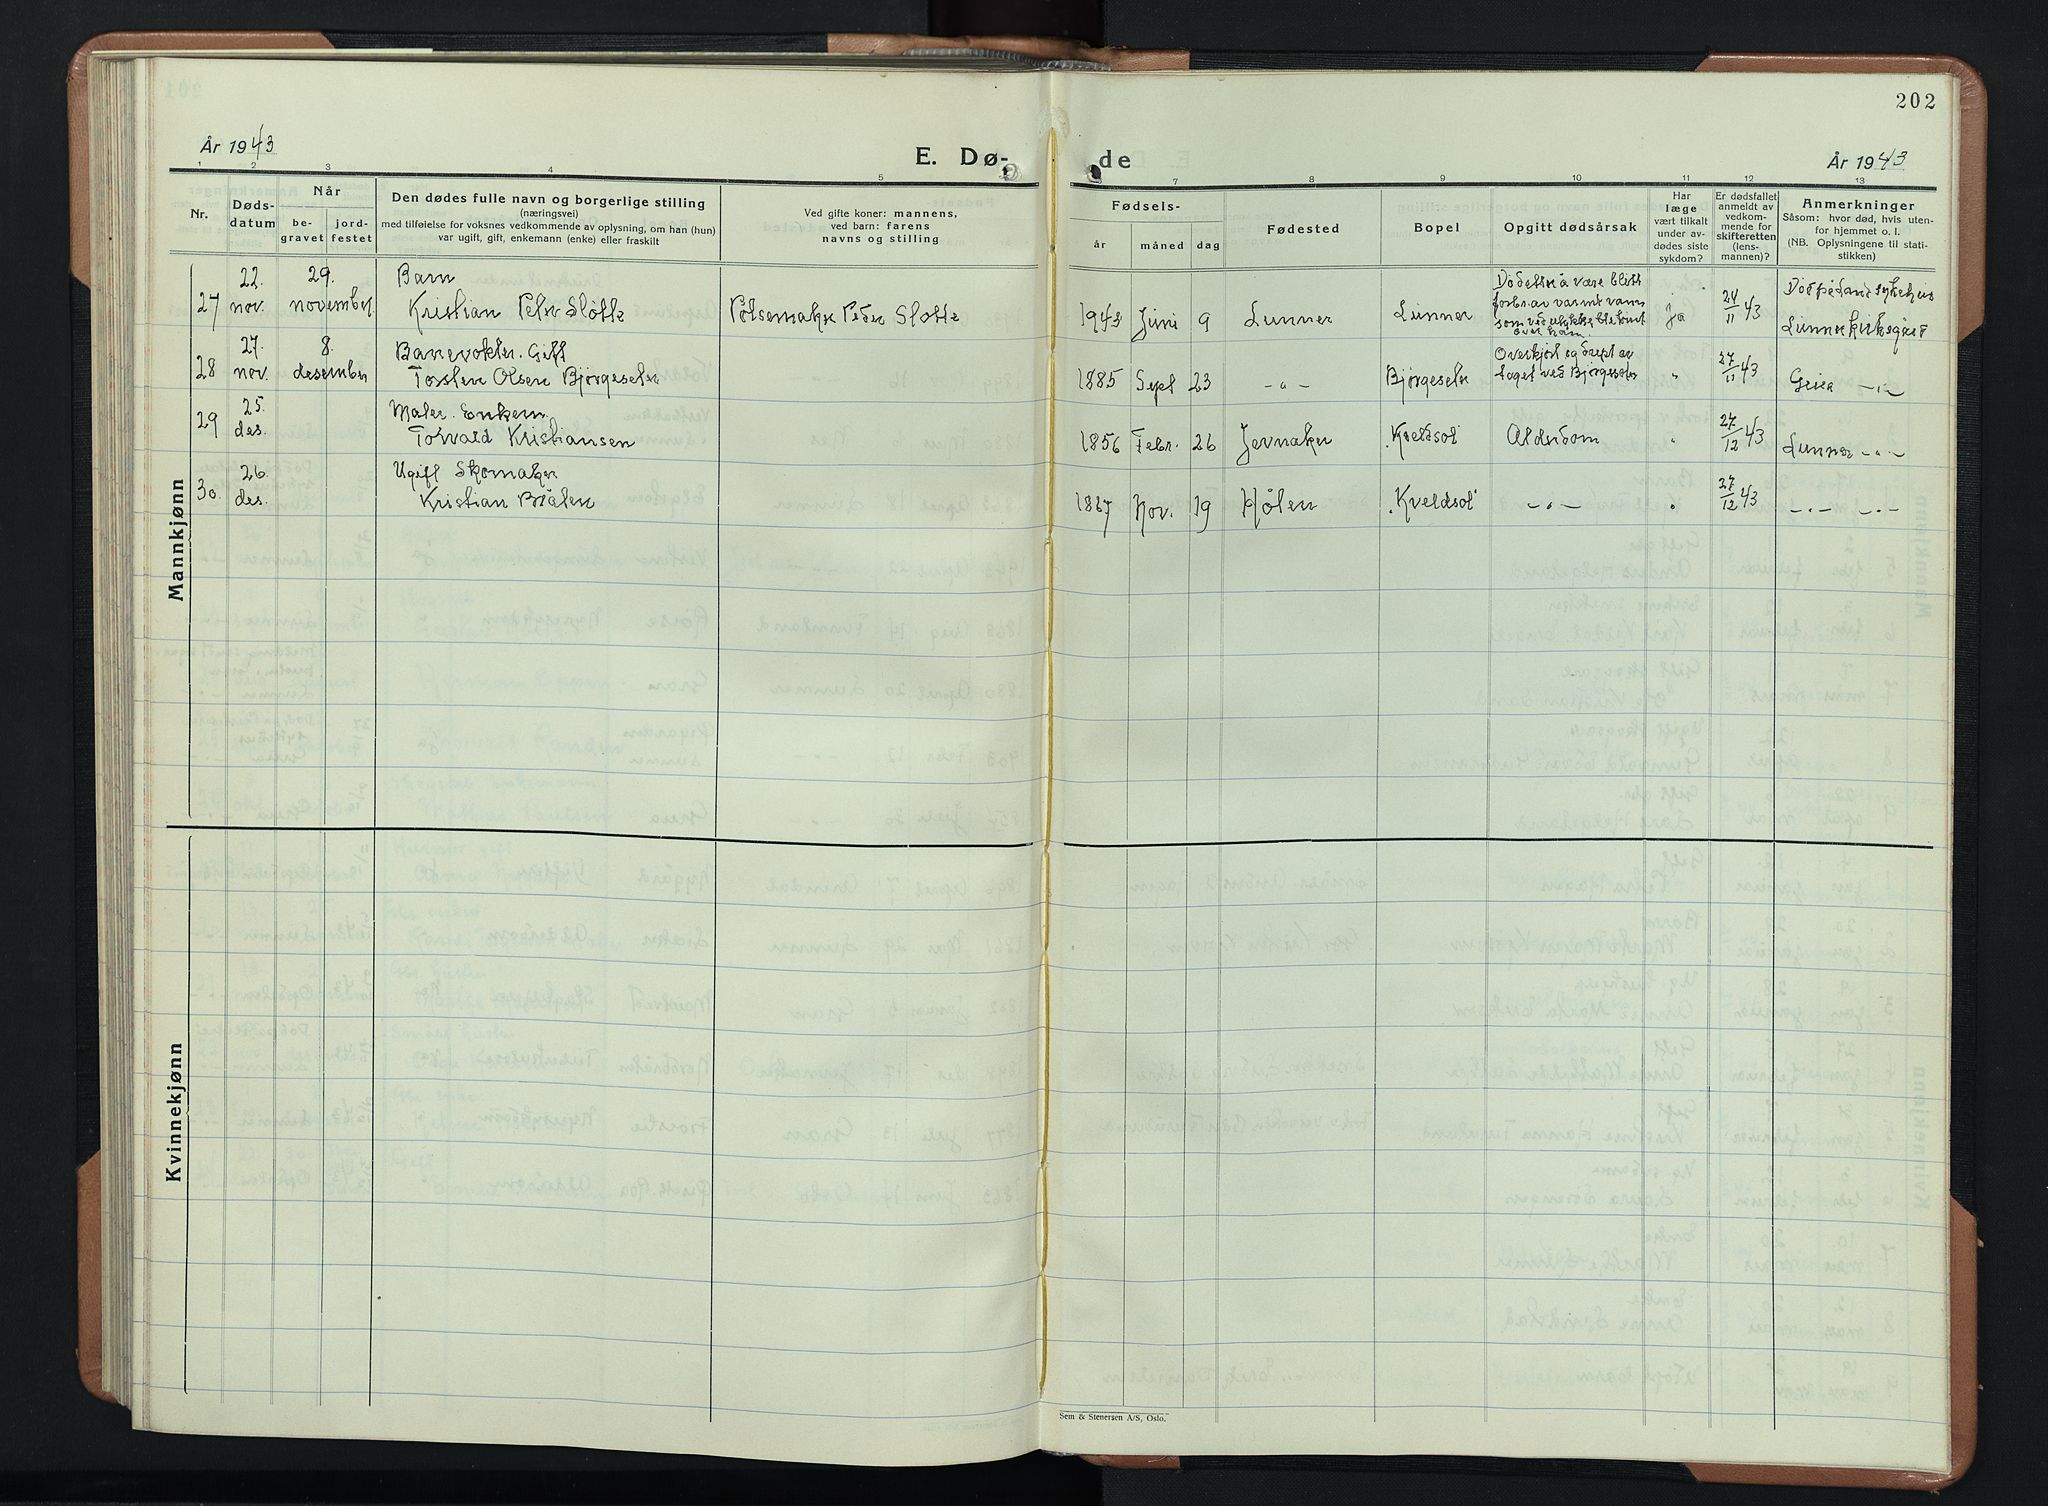 202
År 1943
E. Dø-
de
År 1943
1 2 3 4 5 6 7 8 9 10 11 12 13
Nr.
Døds-
datum
Når
be-
gravet
jord-
festet
Den dødes fulle navn og borgerlige stilling
(næringsvei)
med tilføielse for voksnes vedkommende av oplysning, om han (hun)
var ugift, gift, enkemann (enke) eller fraskilt
Ved gifte koner: mannens,
ved barn: farens
navns og stilling
Fødsels-
år måned dag
Fødested
Bopel
Opgitt dødsårsak
Har
læge
vært tilkalt
under av-
dødes siste
sykdom?
Er dødsfallet
anmeldt av
vedkom-
mende for
skifteretten
(lens-
mannen)?
Anmerkninger
Såsom: hvor død, hvis uten-
for hjemmet o. l.
(NB. Oplysningene til stati-
stikken)
Mannkjønn
27 22. nov. 29. november Barn
Kristian Peter Slotte Pølsemaker Peder Slotte 1943 Juni 9 Lunner Lunner Dødetsnå være blitt
forbr. av varmt vann
som ved ulykke ble tømt
over ham ja 24/11 43 Død på Land sykehus
Lunner kirkegård
28 27. nov. 8. desember Banevokter. Gift
Torsten Olsen Bjørgeseter 1885 Sept 23 -"- Bjørgeseter Overkjørt og drept av
toget ved Bjørgeseter " 27/11 43 Grua -"-
29 25. des. Maler. Enkem.
Torvald Kristiansen 1856 Febr. 26 Jevnaker Kveldsol Alderdom " 27/12 43 Lunner -"-
30. 26. des. Ugift Skomaker
Kristian Bråten 1867 Nov. 19 Hølen Kveldsol -"- " 27/12 43 -"- -"-
Kvinnekjønn
Sem & Stenersen A/S, Oslo.